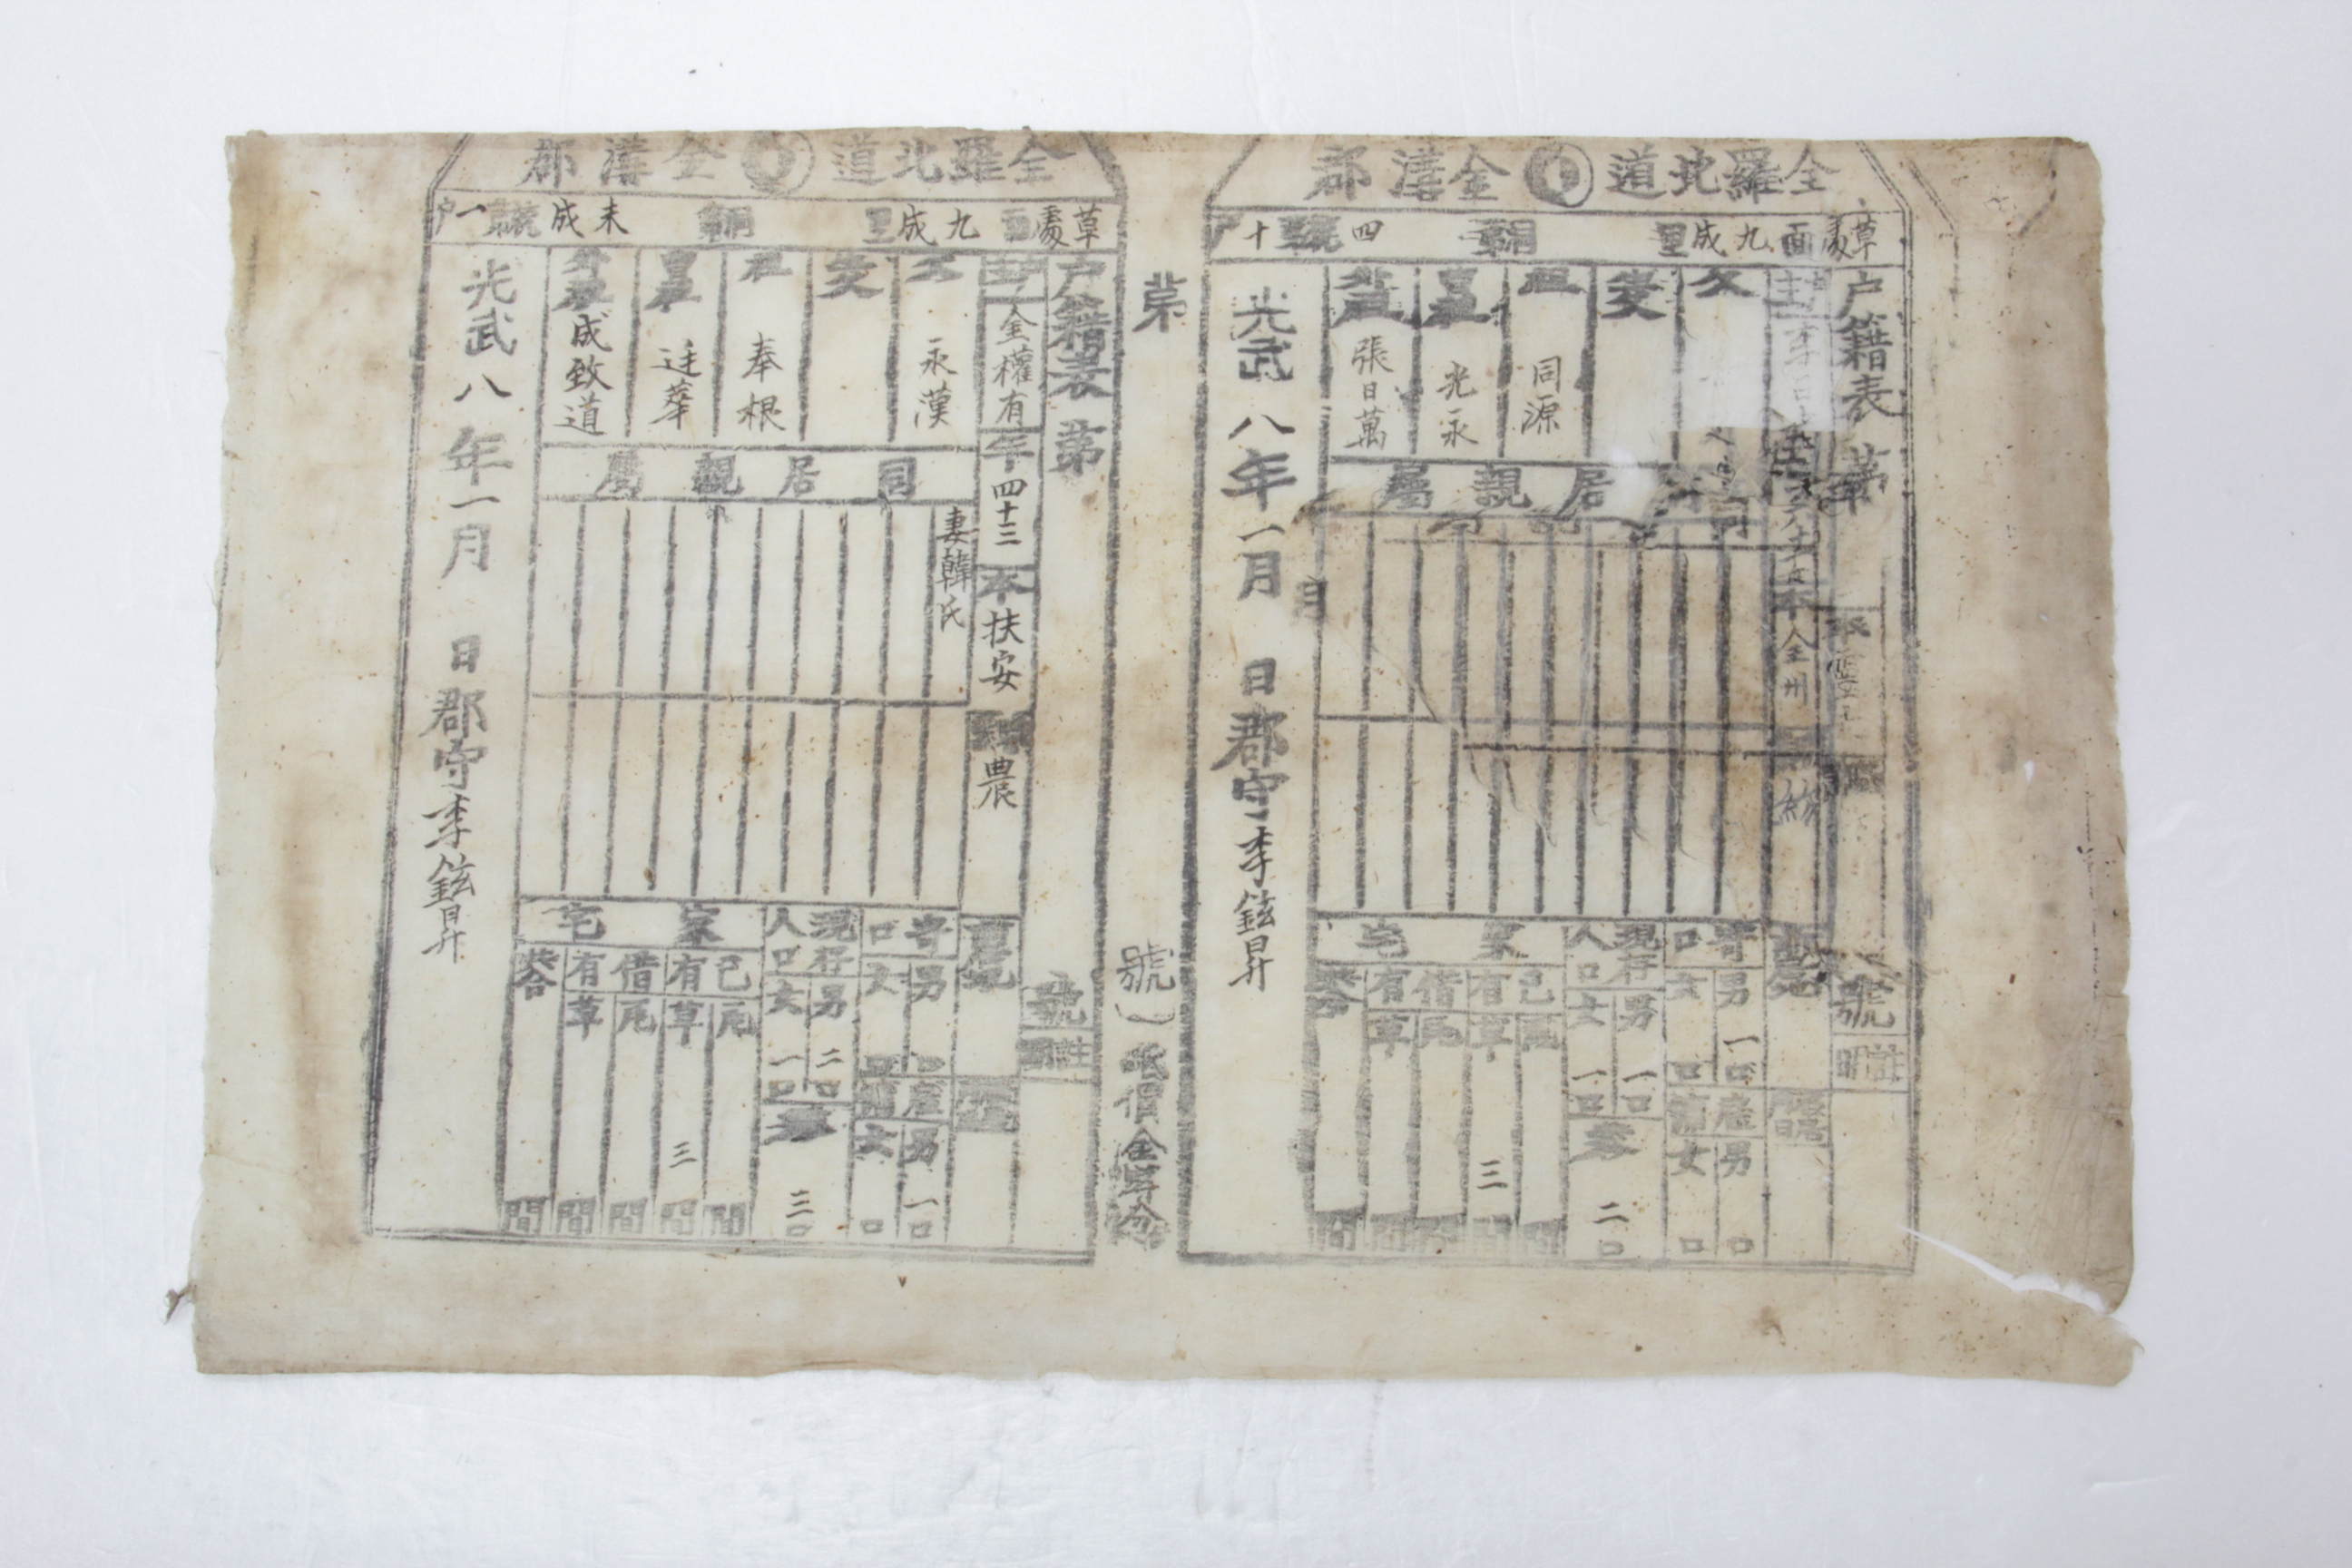 全羅北道 金溝郡
草處面 九成里 洞 四 號 十 戶
戶籍表 第 號
主
父
生父
祖 同源
曾祖 光永
外祖 張日萬
本 全州
同居親屬
寄口 男 一口 女 口
雇傭 男 口 女 口
現存人口 男 一口 女 一口
共 二口
家宅
己有 瓦 間 草 三間
借有 瓦 間 草 間
共合 間
光武八年一月 日 郡守李鉉昇
第 號 紙價金肆分
全羅北道 金溝郡
草處面 九成里 洞 末成 號 一戶
戶籍表 第 號
主 金權有 年四十三 本扶安 農
父 永漢
生父
祖 奉根
曾祖 廷華
外祖 成致道
同居親屬
妻韓氏
寄口 男 口 女 口
雇傭 男 一口 女 口
現存人口 男 二口 女 一口
共 三口
家宅
己有 瓦 間 草 三間
借有 瓦 間 草 間
共合 間
光武八年一月 日 郡守李鉉昇